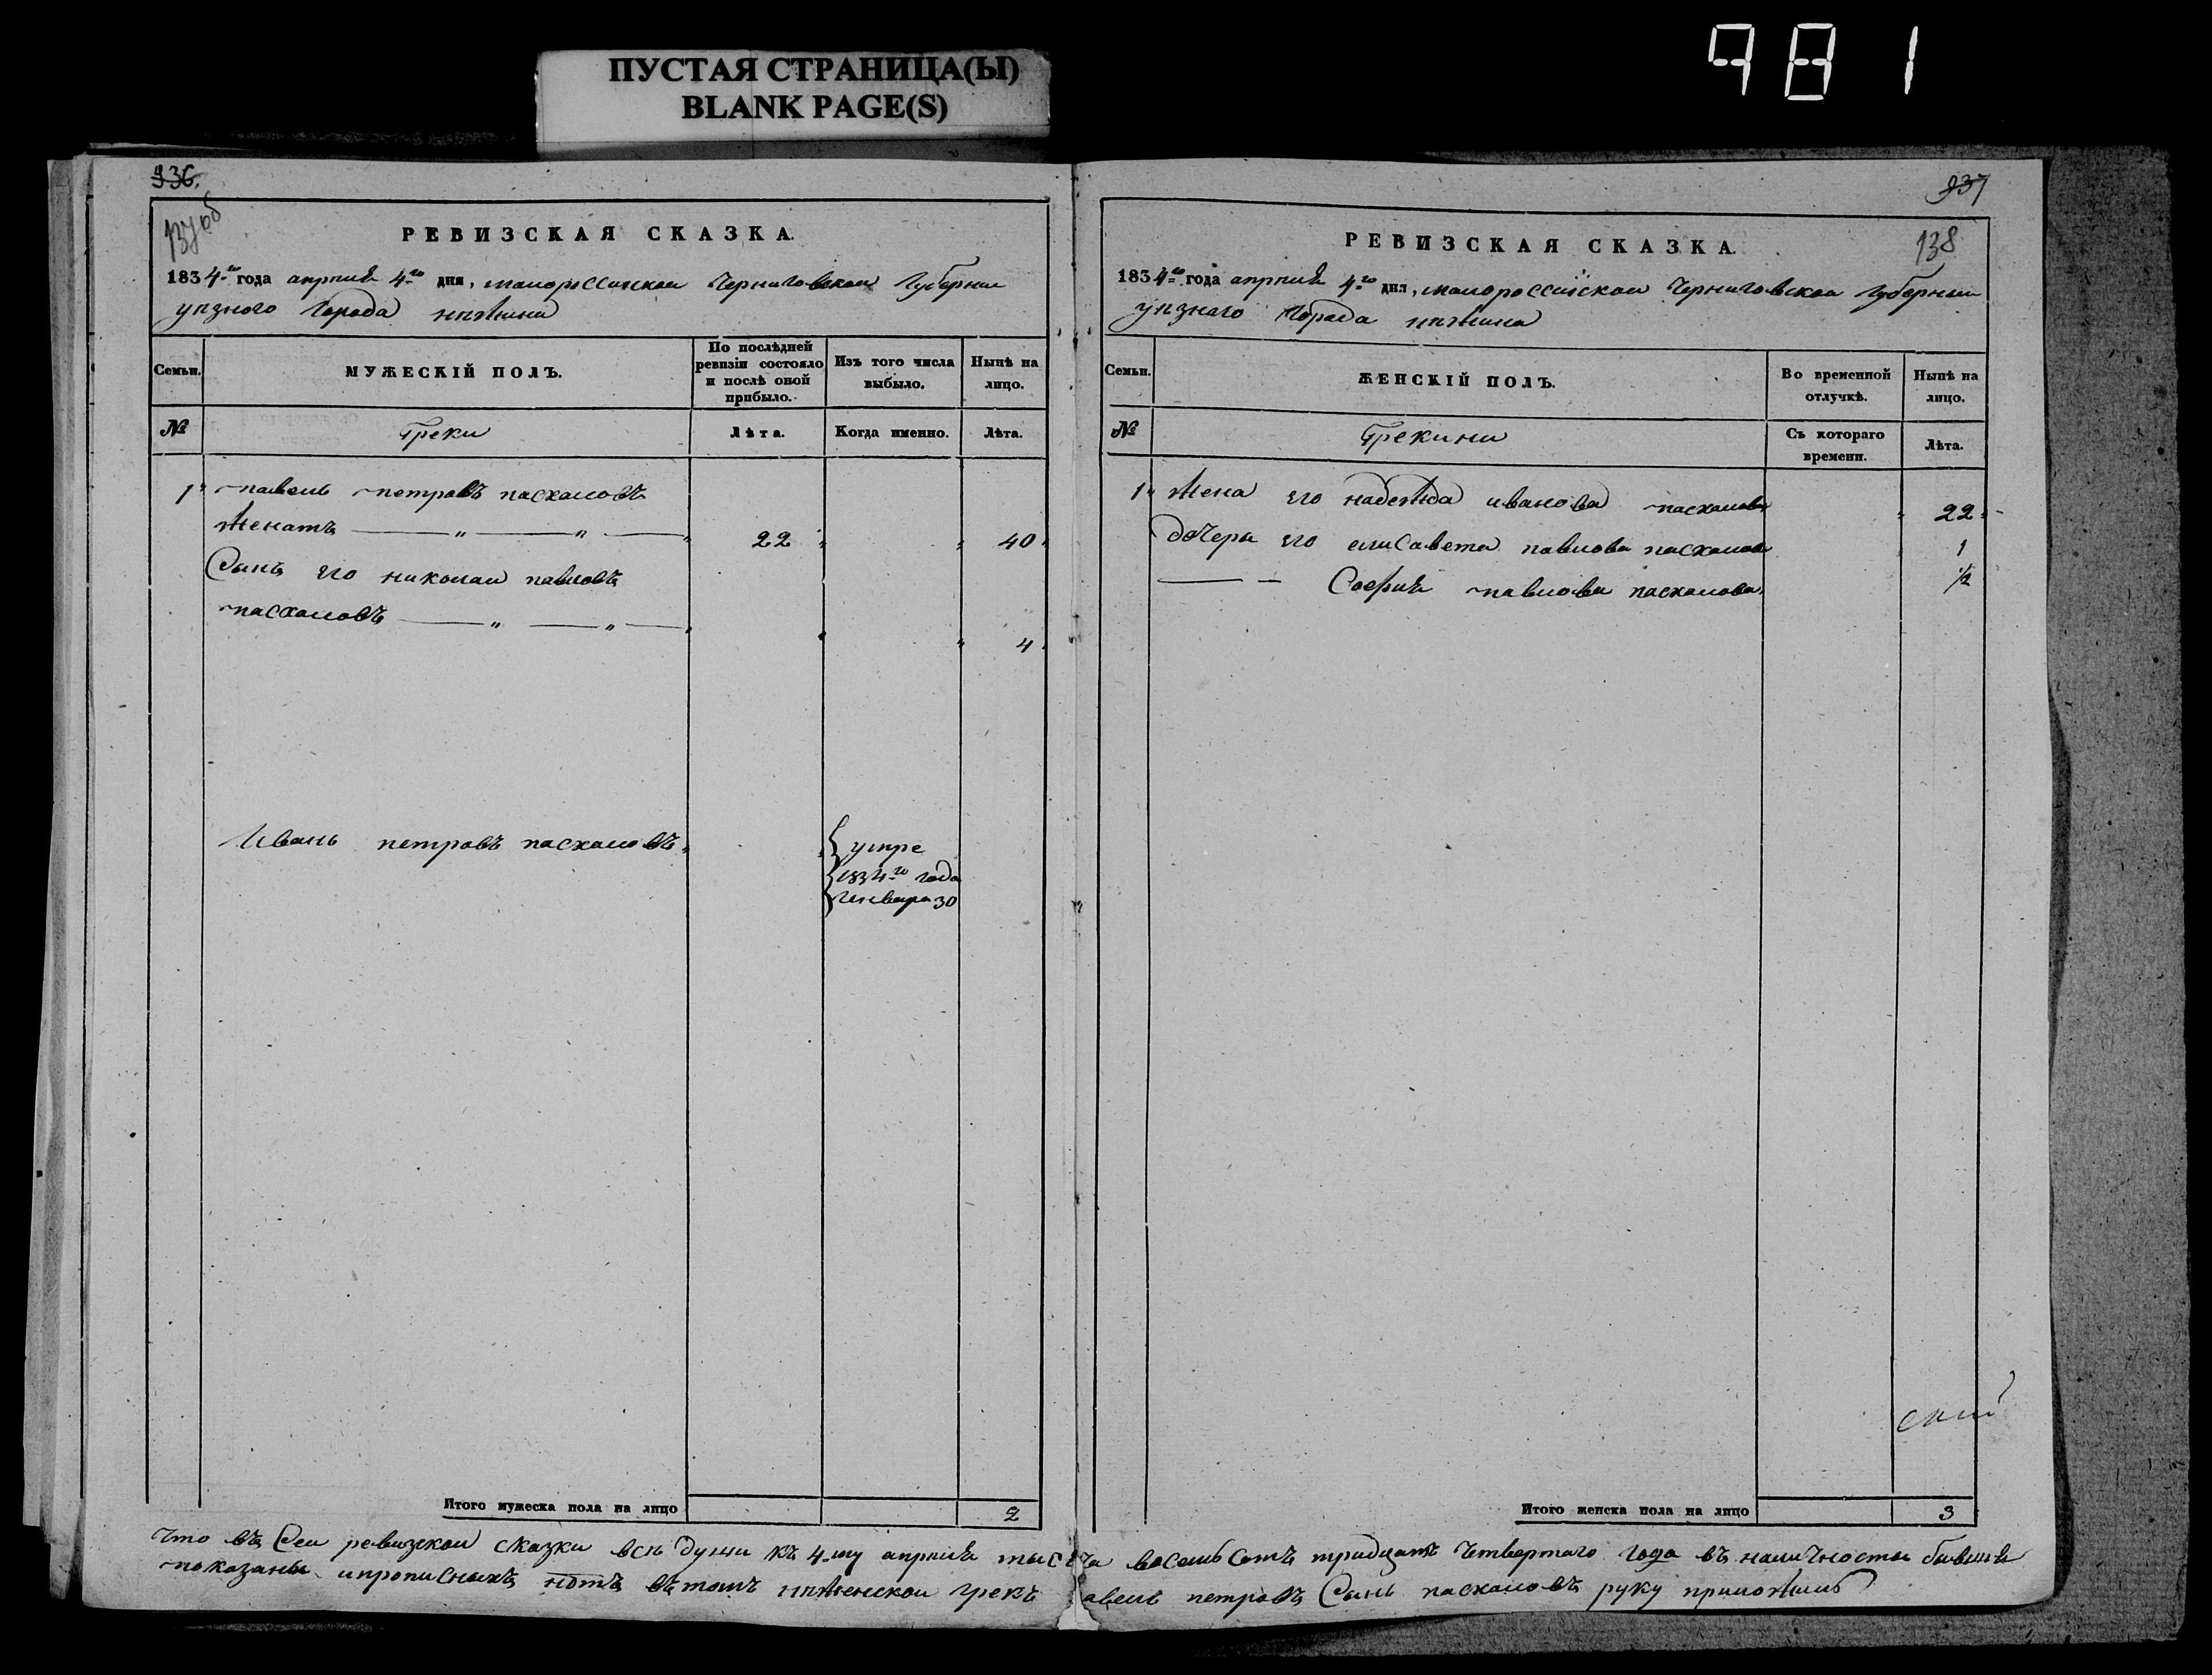 ПУСТАЯ СТРАНИЦА(Ы)
BLANK PAGE(S)
981
936.
137об
РЕВИЗСКАЯ СКАЗКА.
1834-го года апреля 4-го дня, малороссийской Черниговской Губернии
уезного Города нежина
Семьи.
МУЖЕСКІЙ ПОЛЪ.
По послѣдней ревизіи состояло и послѣ оной прибыло.
Изъ того числа выбыло.
Нынѣ на лицо.
№
Греки
Лѣта.
Когда именно.
Лѣта.
1 павель петровъ пасхаловъ
женатъ 22 40
Сынъ его николаи павловъ
пасхаловъ 4
Ивань петровъ пасхаловъ
умре
1834-го года
Генваря 30
Итого мужеска пола на лицо 2
937
138
РЕВИЗСКАЯ СКАЗКА.
1834-го года апреля 4-го дня, малороссійской Черниговской Губернии
уезнаго Города нежина
Семьи.
ЖЕНСКІЙ ПОЛЪ.
Во временной отлучкѣ.
Нынѣ на лицо.
№
Грекини
Съ котораго времени.
Лѣта.
1 жена его надежда иванова пасхалова 22
дочери его елисавета павлова пасхалова 1
София павлова пасхалова 1/2
Итого женска пола на лицо 3
что въ Сеи ревизскои сказки все души къ 4-му апреля тысеча восемьсотъ тридцать четвертаго года въ наличности бывшия
показаны и прописныхъ нетъ въ томъ неженской грекъ авель петровъ Сынъ пасхаловъ руку приложилъ